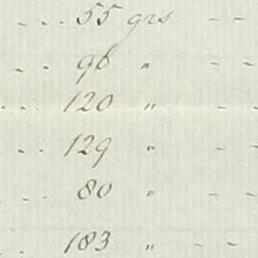 ... 55 grs - -
.. 96 " - -
... 120 " - -
.. 129 " - -
.. 80 " - -
.. 183 " - -